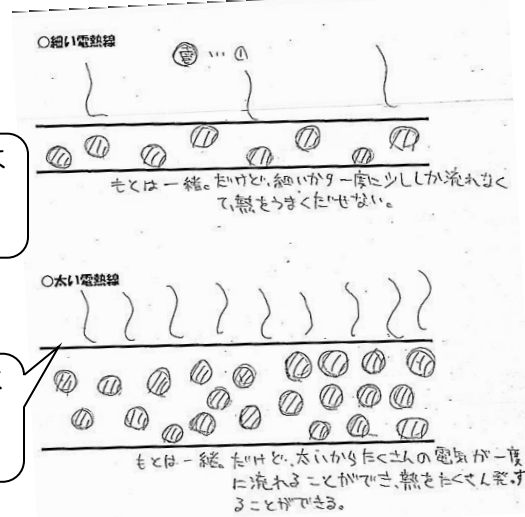 ○細い電熱線
電…
もとは一緒。だけど、細いから一度に少ししか流れなく
て、熱をうまくだせない。
○太い電熱線
もとは一緒。だけど、太いからたくさんの電気が一度
に流れることができ、熱をたくさん発す
ることができる。